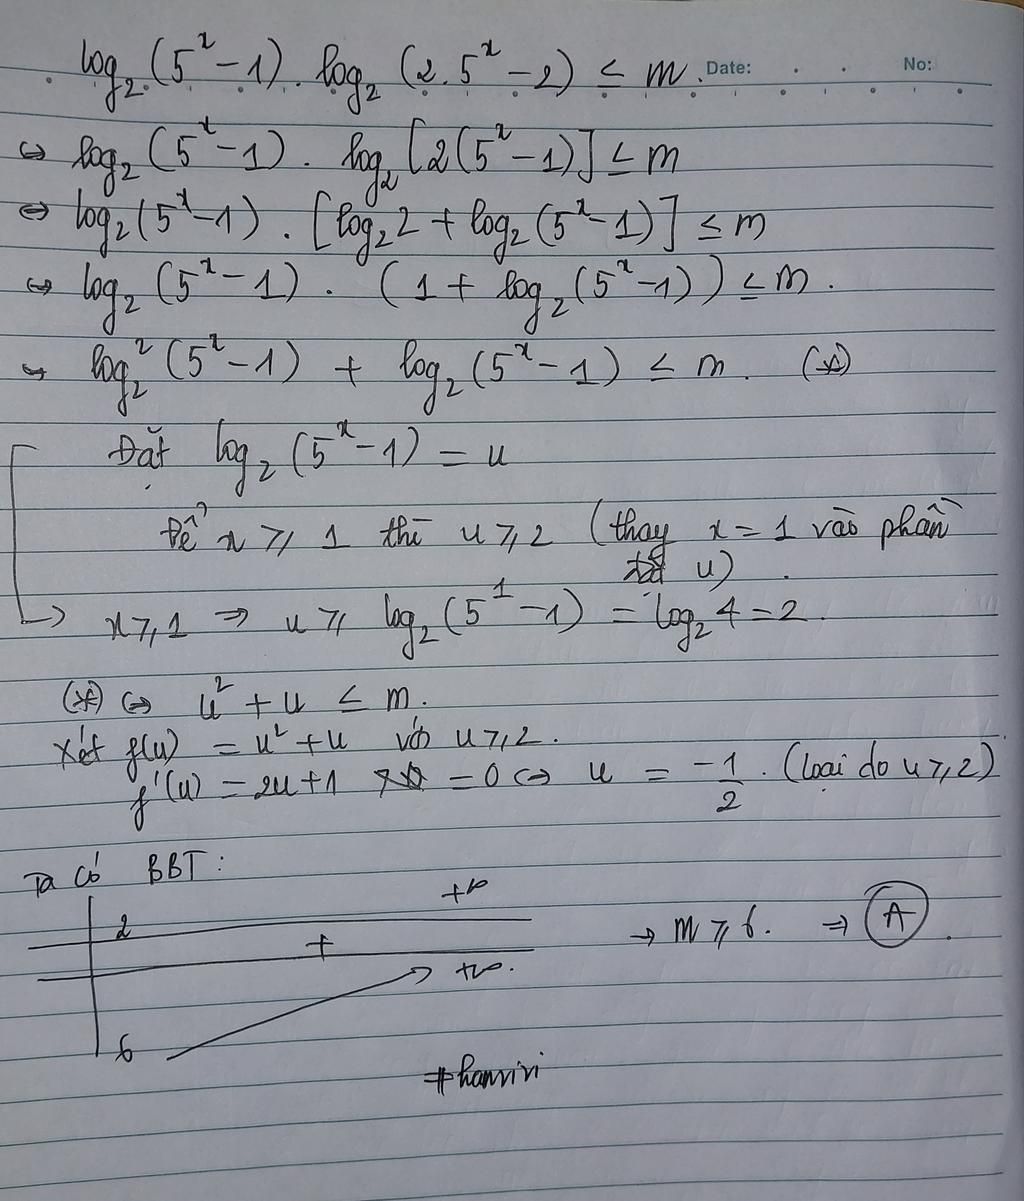 log₂(5ˣ-1). log₂(2.5ˣ-2) ≤ m. Date: No:
⇔ log₂(5ˣ-1). log₂[2(5ˣ-1)] ≤ m
⇔ log₂(5ˣ-1). [log₂2 + log₂(5ˣ-1)] ≤ m
⇔ log₂(5ˣ-1). (1 + log₂(5ˣ-1)) ≤ m.
⇔ log₂²(5ˣ-1) + log₂(5ˣ-1) ≤ m. (*)
Đặt log₂(5ˣ-1) = u
Để x ≥ 1 thì u ≥ 2 (thay x = 1 vào phần
đặt u).
→ x ≥ 1 ⇒ u ≥ log₂(5¹-1) = log₂4 = 2.
(*) ⇔ u² + u ≤ m.
Xét f(u) = u² + u với u ≥ 2.
f'(u) = 2u+1 = 0 ⇔ u = -1/2. (loại do u ≥ 2)
Ta có BBT:
2 +∞
+
+∞.
6
→ m ≥ 6. ⇒ A.
#hanriri